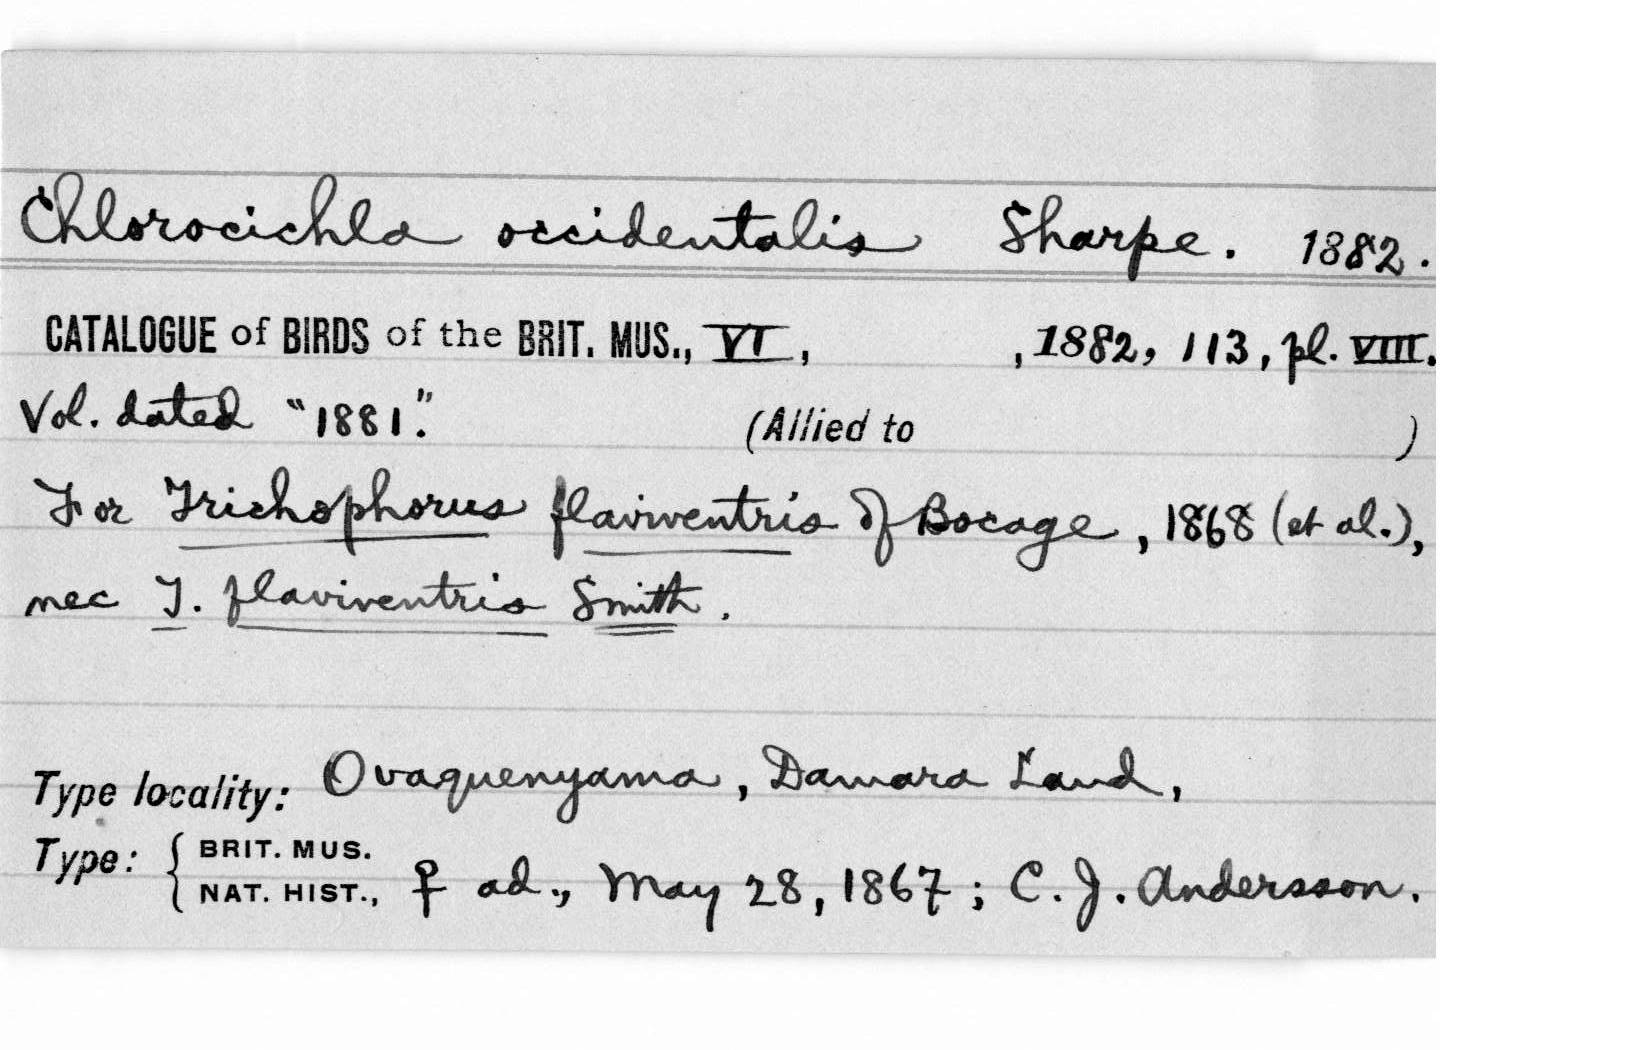 Chlorocichla occidentalis Sharpe. 1882.
CATALOGUE of BIRDS of the BRIT. MUS., VI, , 1882, 113, pl. VIII.
Vol. dated "1881". (Allied to )
For Trichophorus flaviventris of Bocage, 1868 (et al.),
nec T. flaviventris Smith.
Type locality: Ovaquenyama, Damara Land,
Type: { BRIT. MUS.
NAT. HIST., ♀ ad., May 28, 1867; C. J. Andersson.